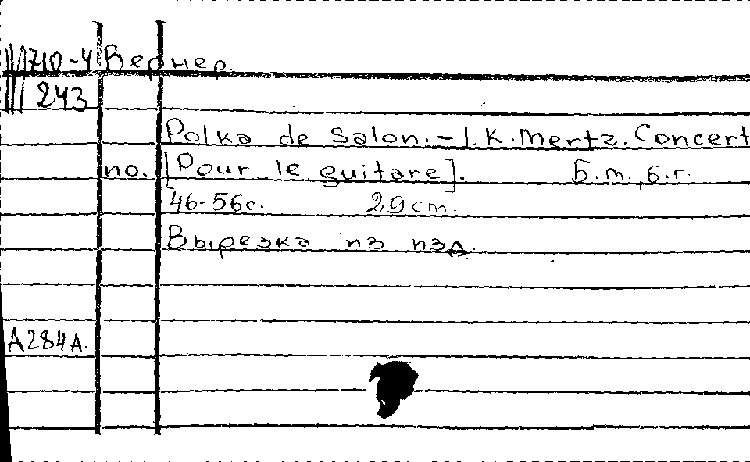 Ш710-4 Вернер.
Ш 243
Polka de salon. - J. K. Mertz. Concert
no. [Pour le guitare]. Б.т., б.г.
46-56с. 29cm.
Вырезка из изд.
А284А.